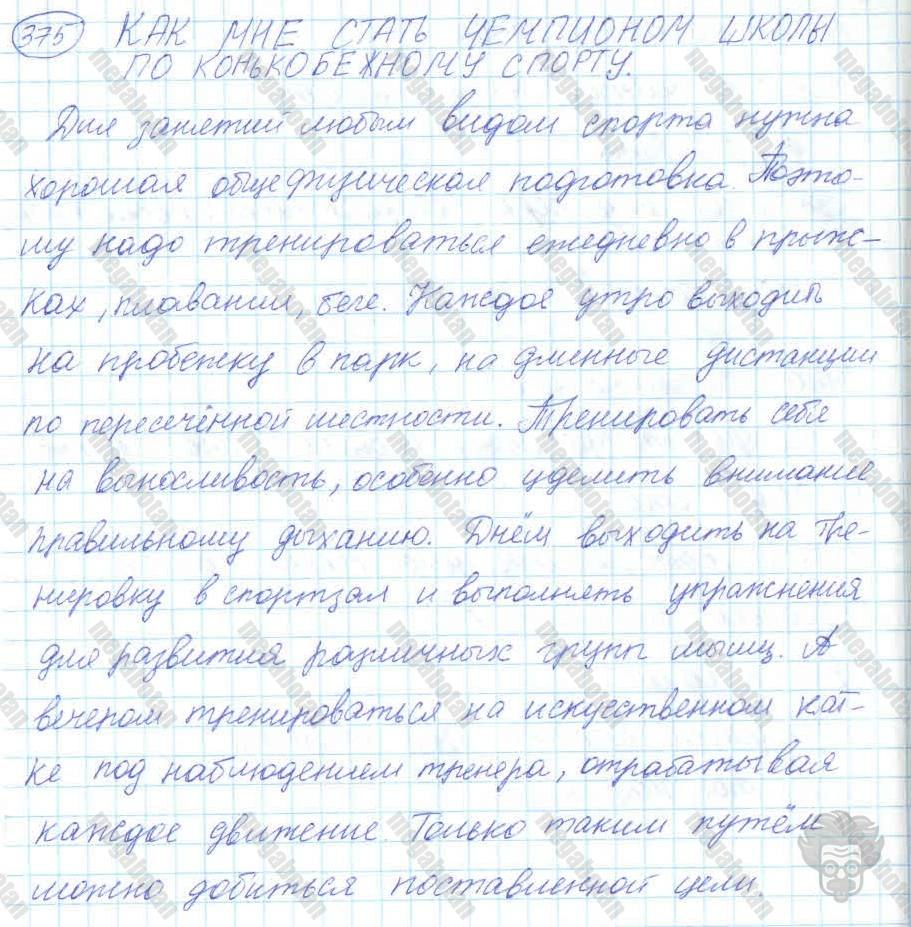 375 КАК МНЕ СТАТЬ ЧЕМПИОНОМ ШКОЛЫ
ПО КОНЬКОБЕЖНОМУ СПОРТУ.
Для занятий любым видом спорта нужна
хорошая общефизическая подготовка. Поэто-
му надо тренироваться ежедневно в прыж-
ках, плавании, беге. Каждое утро выходить
на пробежку в парк, на длинные дистанции
по пересечённой местности. Тренировать себя
на выносливость, особенно уделить внимание
правильному дыханию. Днём выходить на тре-
нировку в спортзал и выполнять упражнения
для развития различных групп мышц. А
вечером тренироваться на искусственном кат-
ке под наблюдением тренера, отрабатывая
каждое движение. Только таким путём
можно добиться поставленной цели.
megabotan